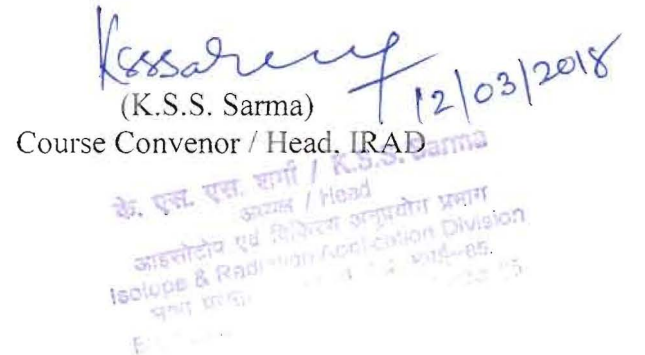 Ksssarma
12/03/2018
(K.S.S. Sarma)
Course Convenor / Head, IRAD
के. एस. एस. शर्मा / K.S.S. Sarma
अध्यक्ष / Head
आइसोटोप एवं विकिरण अनुप्रयोग प्रभाग
Isotope & Radiation Application Division